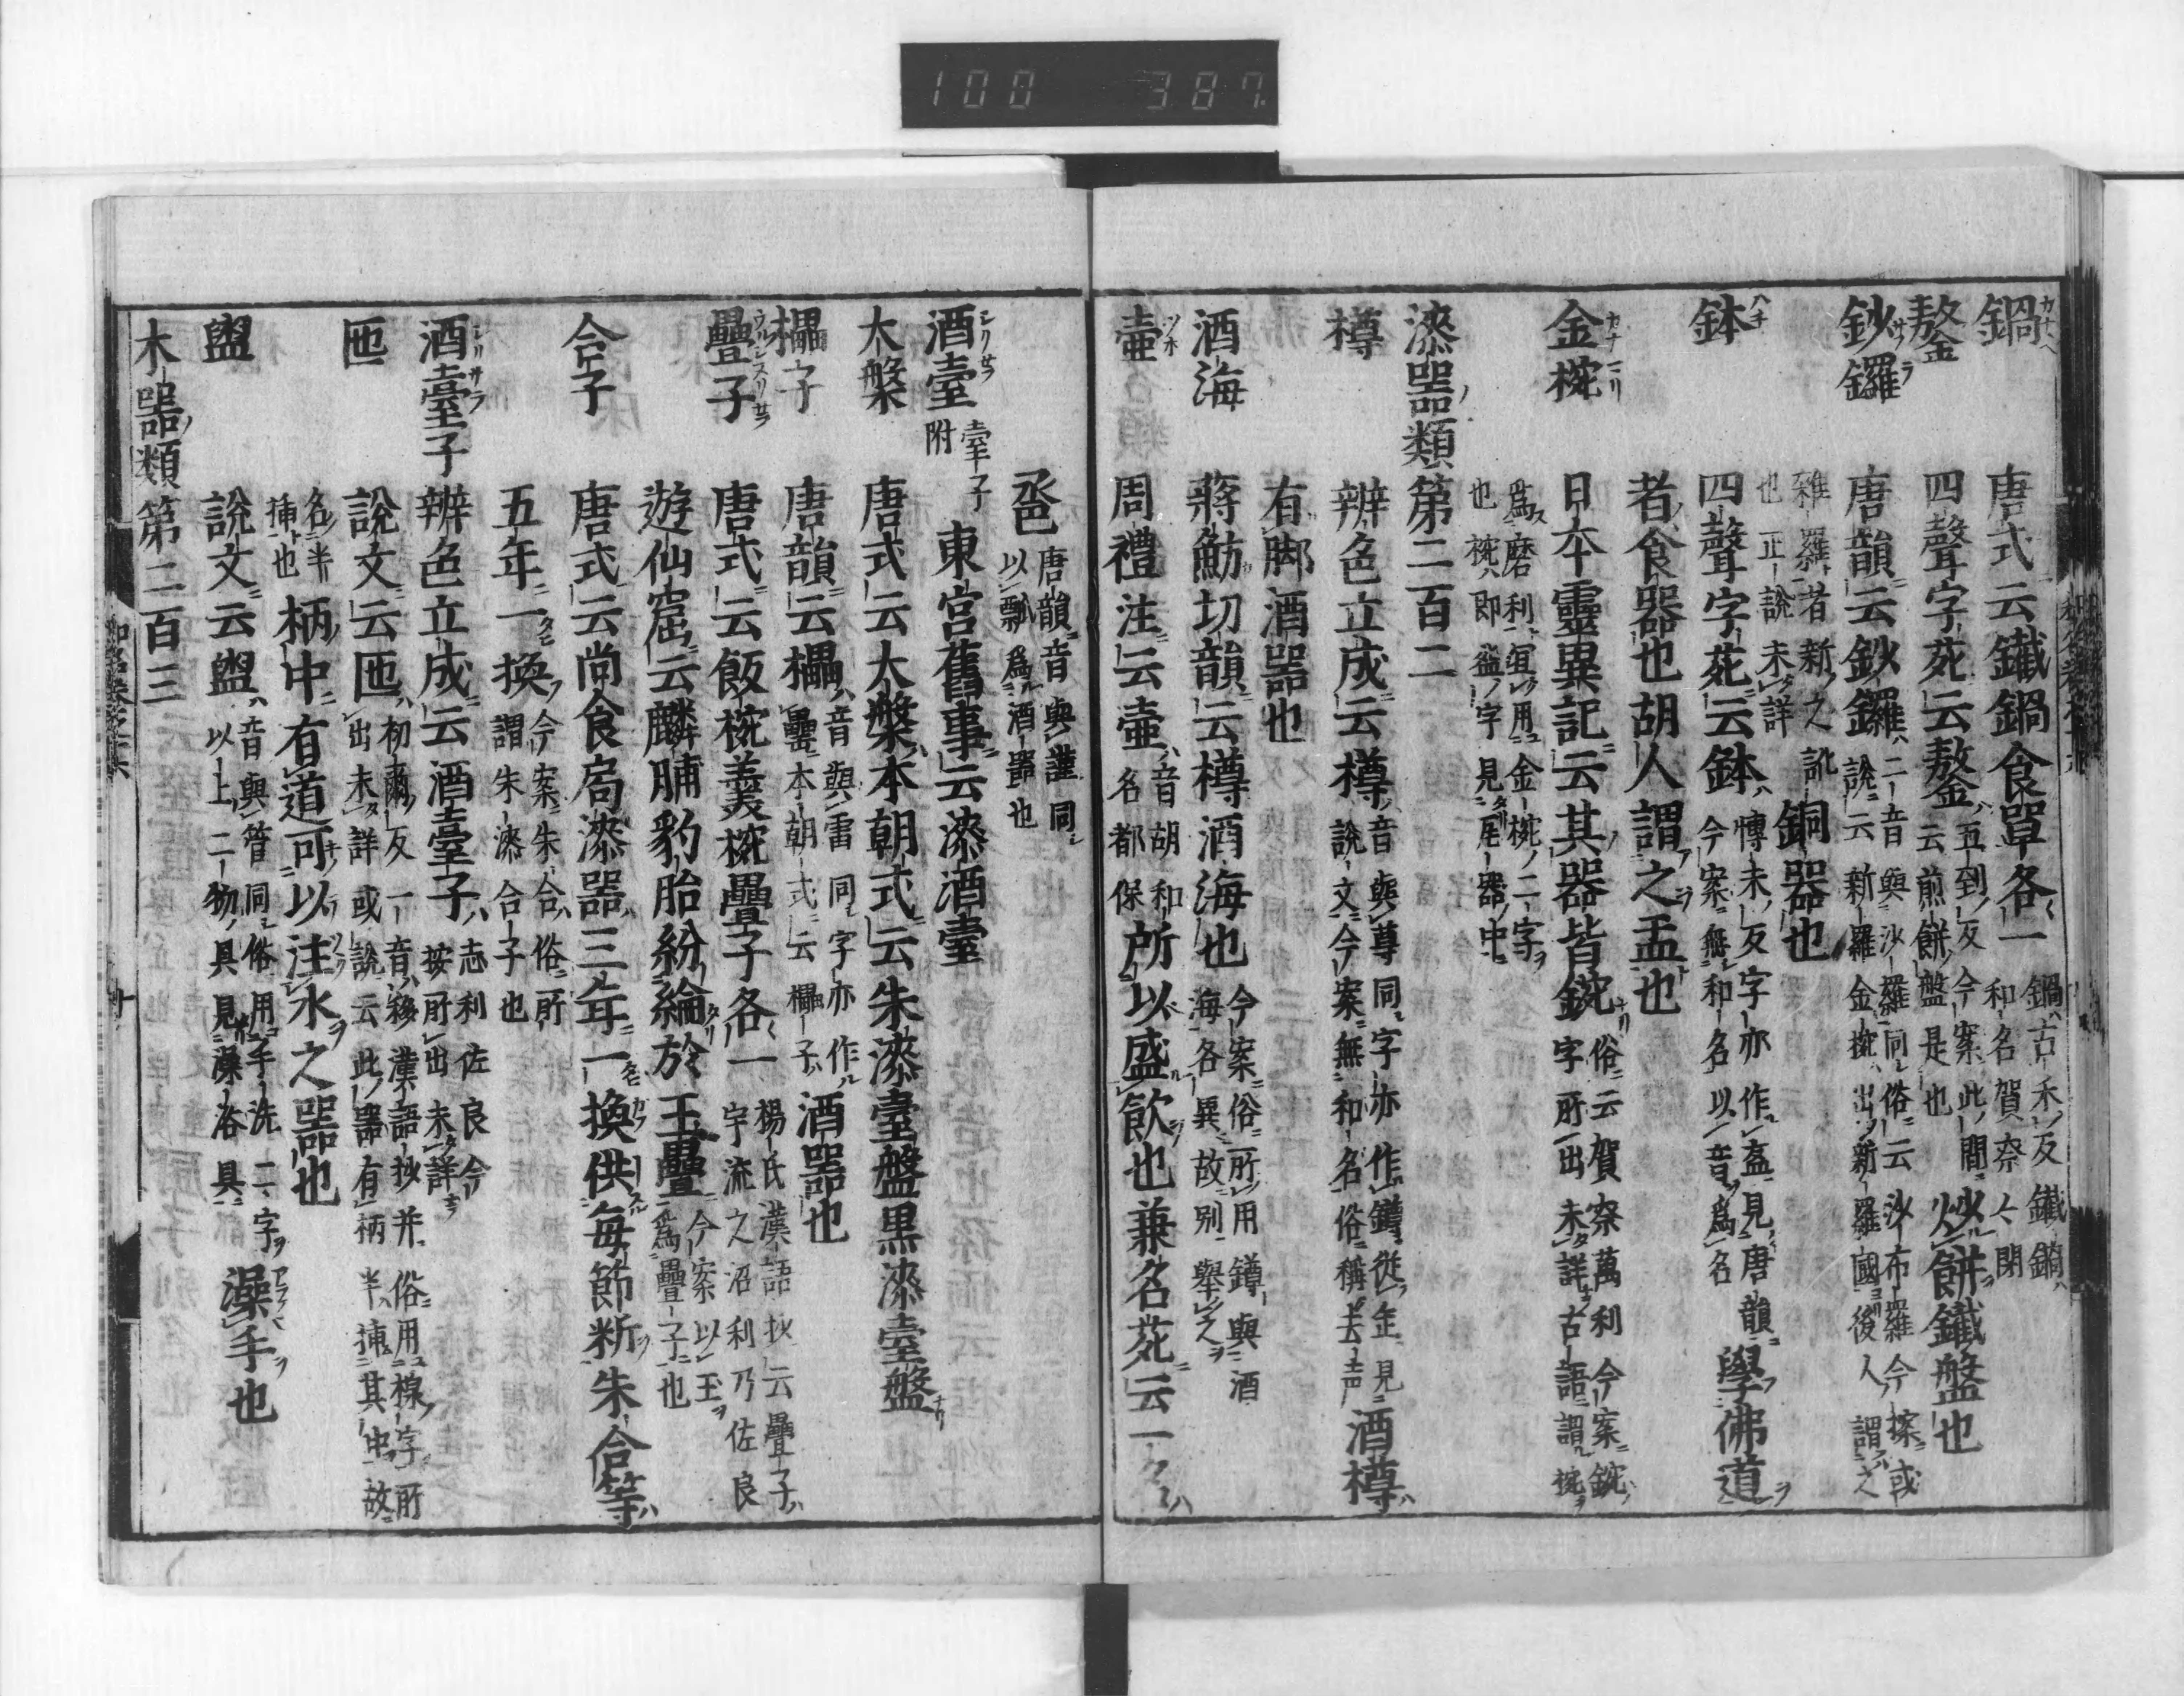 100 387
鍋 唐式云鐵鍋食單各一 鍋古禾反 鐵鍋 和名賀奈 閇
鏊 四聲字苑云鏊 五到反 今案此間 云煎餅盤是也 炒餅鐵盤也
鈔鑼 唐韻云鈔鑼 二音與沙羅同 俗云沙布羅 今案或 說云新羅金椀出新羅國後人謂之
雜羅者新之訛 也 正說未詳 銅器也
鉢 四聲字苑云鉢 博末反 字亦作盋 見唐韻 今案無和名以音爲名 學佛道
者食器也胡人謂之盂也
金椀 日本靈異記云其器皆鋺 俗云賀奈萬利 今案鋺 字所出未詳 古語謂椀
爲磨利 宜用金椀二字 也 椀即盌字 見瓦器中
漆器類第二百二
樽 辨色立成云樽 音與尊同 字亦作罇 從缶 見 說文 今案無和名 俗稱去声 酒樽
有脚酒器也
酒海 蔣魴切韻云樽酒海也 今案俗所用罇與酒 海各異 故別舉之
壷 周禮注云壷 音胡 和 名都保 所以盛飲也兼名苑云一名
卺 唐韻音與謹同 以瓢爲酒器也
酒臺 臺子 附 東宮舊事云漆酒臺
大槃 唐式云大槃本朝式云朱漆臺盤黒漆臺盤
櫑子 唐韻云櫑 音與雷同 字亦作罍 本朝式云櫑子 酒器也
疊子 唐式云飯椀羹椀疊子各一 楊氏漢語抄云疊子 宇流之沼利乃佐良
遊仙窟云麟脯豹胎紛綸於玉疊 今案以玉 爲疊子也
合子 唐式云尚食局漆器三年一換供毎節料朱合等
五年一換 今案朱合俗所 謂朱漆合子也
酒臺子 辨色立成云酒臺子 志利佐良 今 按所出未詳
匜 說文云匜 初爾反 一音移 漢語抄并俗用楾字所 出未詳 或說云此器有柄半挿其中故
名半 挿也 柄中有道可以注水之器也
盥 說文云盥 音與管同 俗用手洗二字 以上二物具見澡浴具 澡手也
木器類第二百三